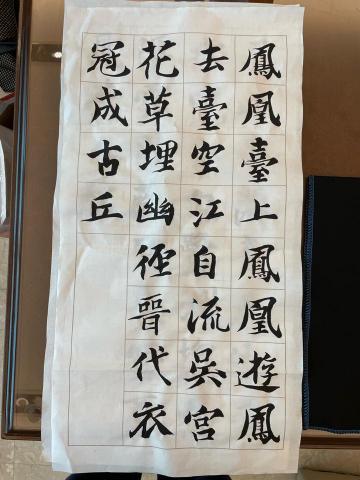 鳳凰臺上鳳凰遊鳳
去臺空江自流吳宮
花草埋幽徑晉代衣
冠成古丘